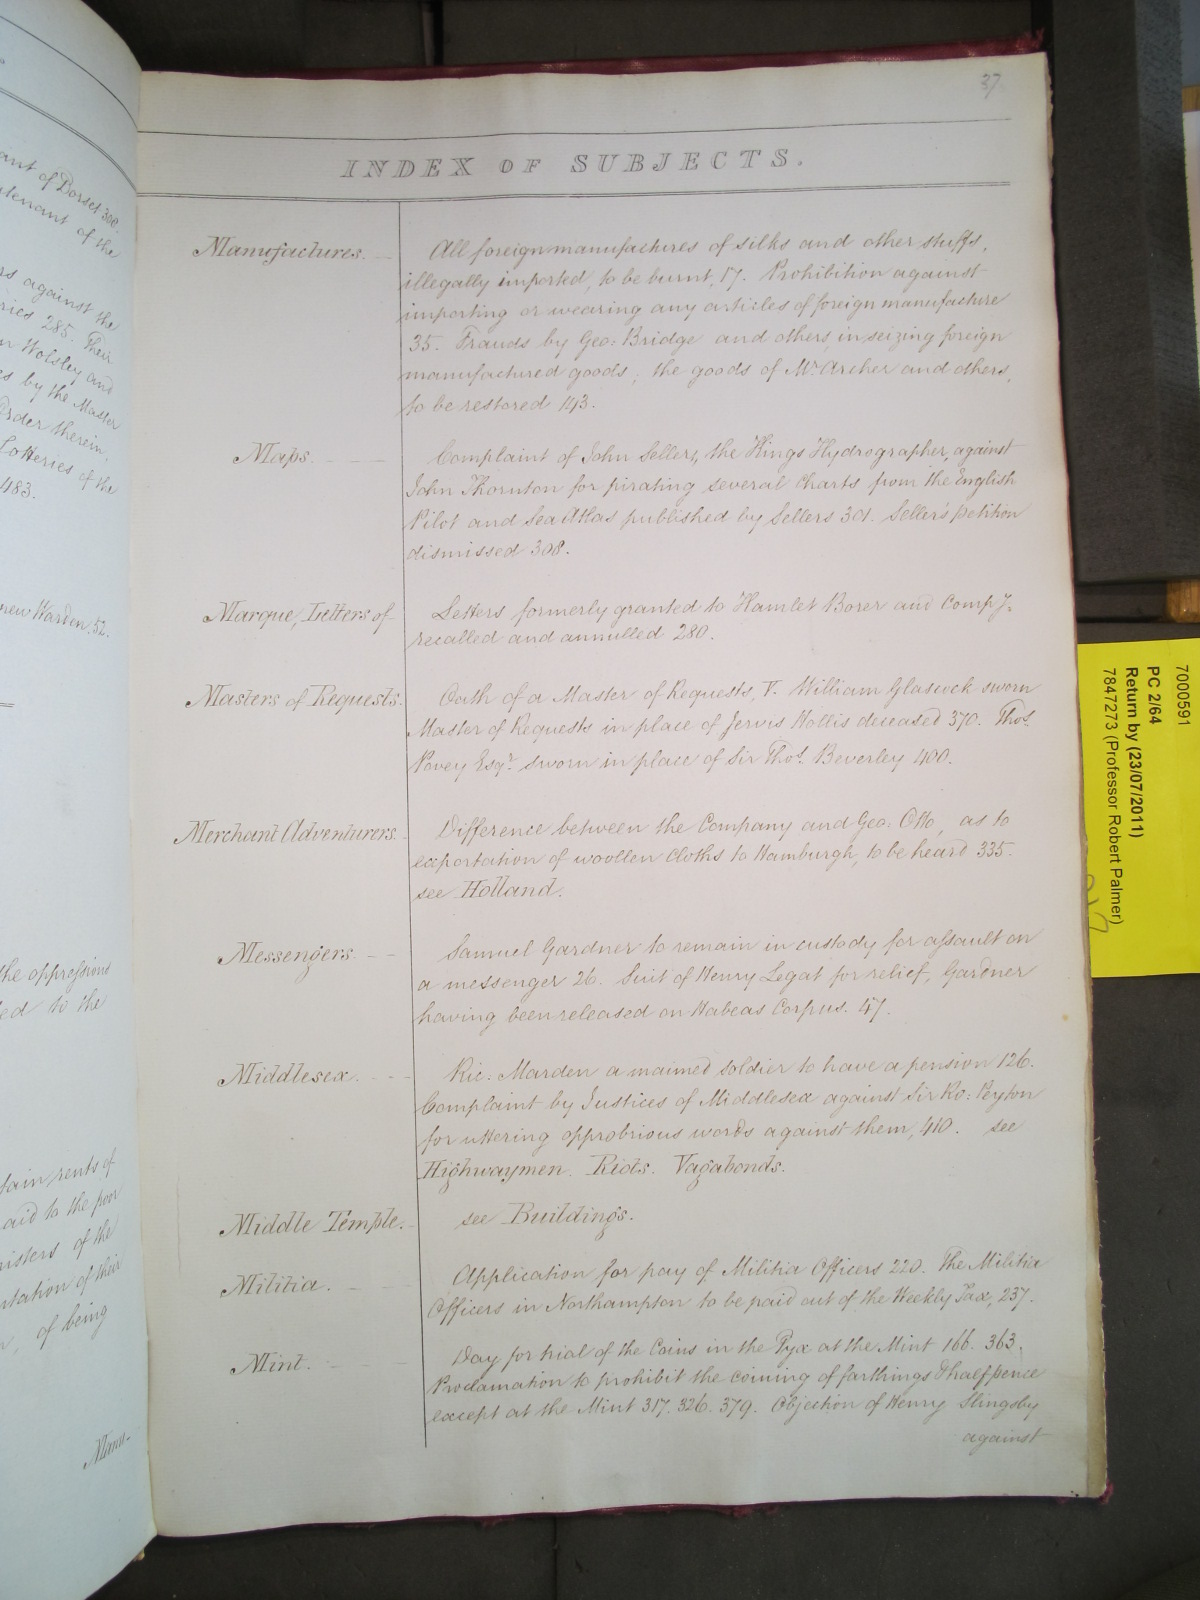 37
INDEX OF SUBJECTS.
Manufactures.
All foreign manufactures of silks and other stuffs,
illegally imported, to be burnt, 17. Prohibition against
importing or wearing any articles of foreign manufacture
35. Frauds by Geo: Bridge and others, in seizing foreign
manufactured goods; the goods of Mr. Archer and others,
to be restored 143.
Maps.
Complaint of John Sellers, the Kings Hydrographer, against
John Thornton for pirating several Charts from the English
Pilot and Sea Atlas published by Sellers 301. Seller's petition
dismissed 308.
Marque, Letters of
Letters formerly granted to Hamlet Borer and Compy.
recalled and annulled 280.
Masters of Requests.
Oath of a Master of Requests, V. William Glascock sworn
Master of Requests in place of Jervis Hollis deceased 370. Thos.
Povey Esqr. sworn in place of Sir Thos. Beverley 400.
Merchant Adventurers.
Difference between the Company and Geo: Otto, as to
exportation of woollen Cloths to Hamburgh, to be heard 335.
see Holland.
Messengers.
Samuel Gardner to remain in custody for assault on
a messenger 26. Suit of Henry Legat for relief, Gardner
having been released on Habeas Corpus. 47.
Middlesex.
Ric: Marden a maimed soldier to have a pension 126.
Complaint by Justices of Middlesex against Sir Ro: Peyton
for uttering opprobrious words against them, 410. see
Highwaymen. Riots. Vagabonds.
Middle Temple.
see Buildings.
Militia.
Application for pay of Militia Officers 220. The Militia
Officers in Northampton to be paid out of the Weekly Tax, 237.
Mint.
Day for trial of the Coins in the Pyx at the Mint 166. 363.
Proclamation to prohibit the coining of farthings & halfpence
except at the Mint 317. 326. 379. Objection of Henry Slingsby
against
ant of Dorset 300.
tenant of the
rs against the
ries 285. Their
n Wolsley and
es by the Master
Order therein.
Lotteries of the
483.
new Warden. 52.
the oppressions
ed to the
tain rents of
aid to the poor
nisters of the
ntation of their
of being
Manu-
7000591
PC 2/64
Return by (23/07/2011)
7847273 (Professor Robert Palmer)